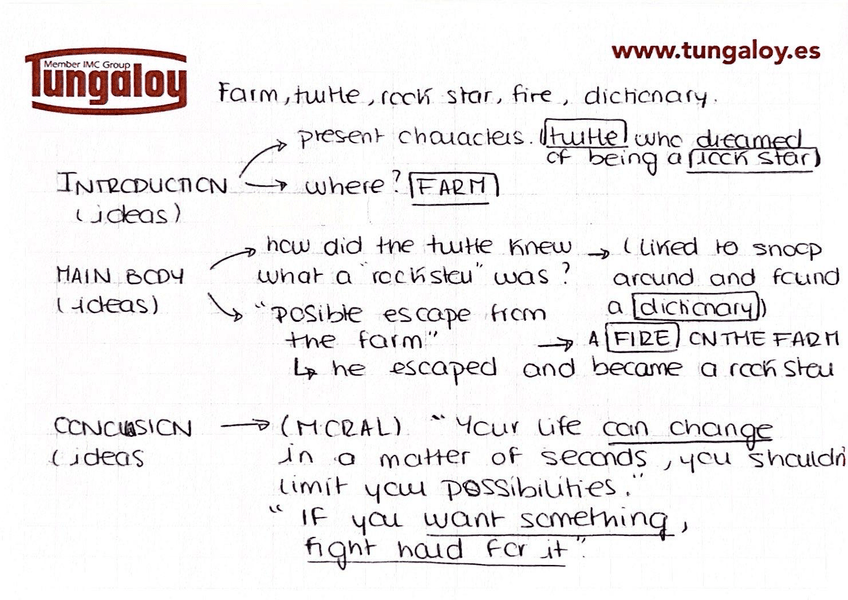 www.tungaloy.es
Member IMC Group
Tungaloy
Farm, turtle, rock star, fire, dictionary.
present characters. (turtle who dreamed
of being a rock star)
INTRODUCTION → where? FARM
(ideas)
how did the turtle knew → (liked to snoop
MAIN BODY what a "rockstar" was? around and found
(ideas) a dictionary)
"posible escape from
the farm" → A FIRE ON THE FARM
↳ he escaped and became a rock star
CONCLUSION → (MORAL). "Your life can change
(ideas in a matter of seconds, you shouldn
limit your possibilities."
"If you want something,
fight hard for it".